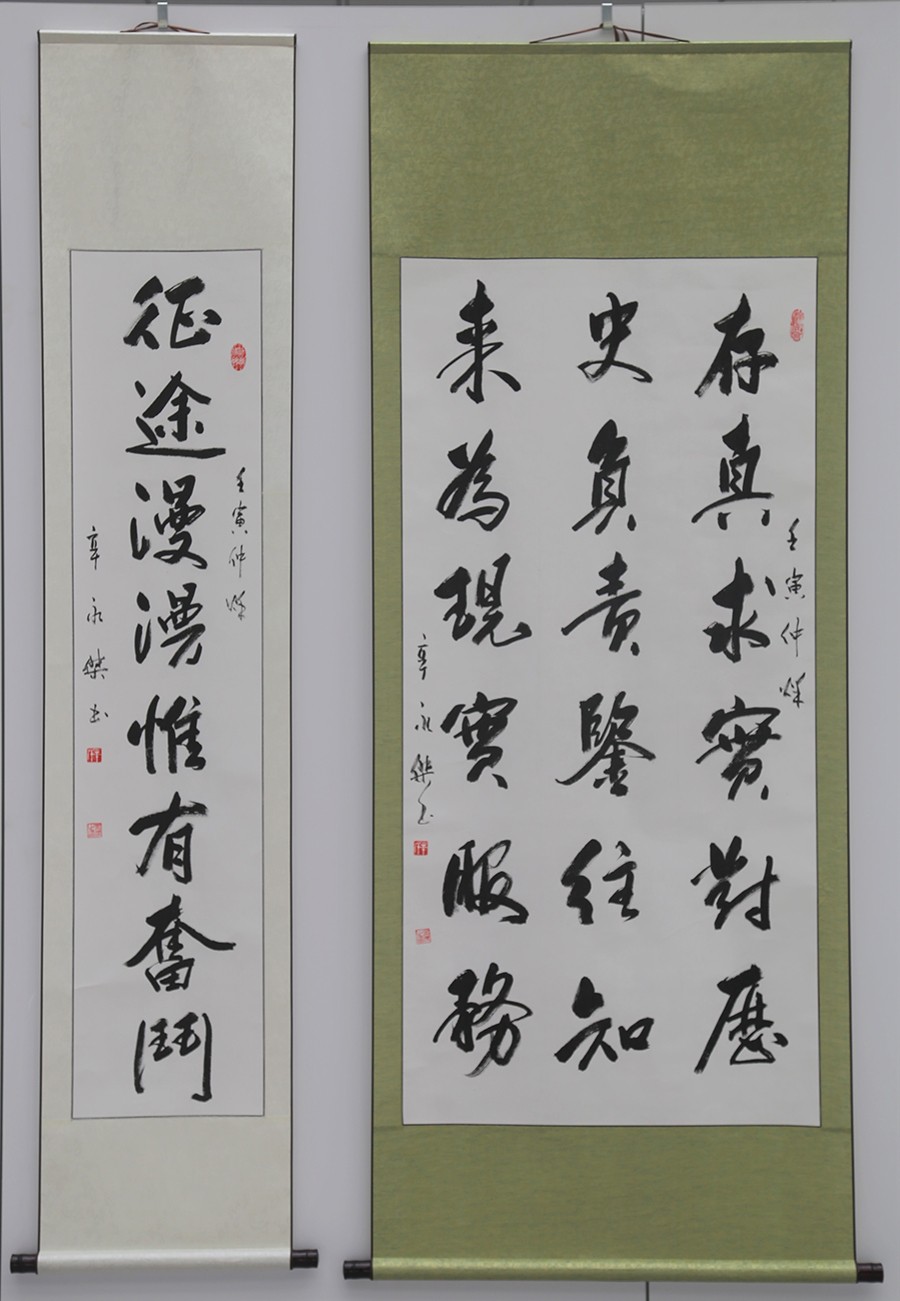 壬寅仲秋
存真求實對歷
史負責鑒往知
来為現實服務
辛永
壬寅仲秋
征途漫漫惟有奮鬥
辛永 书